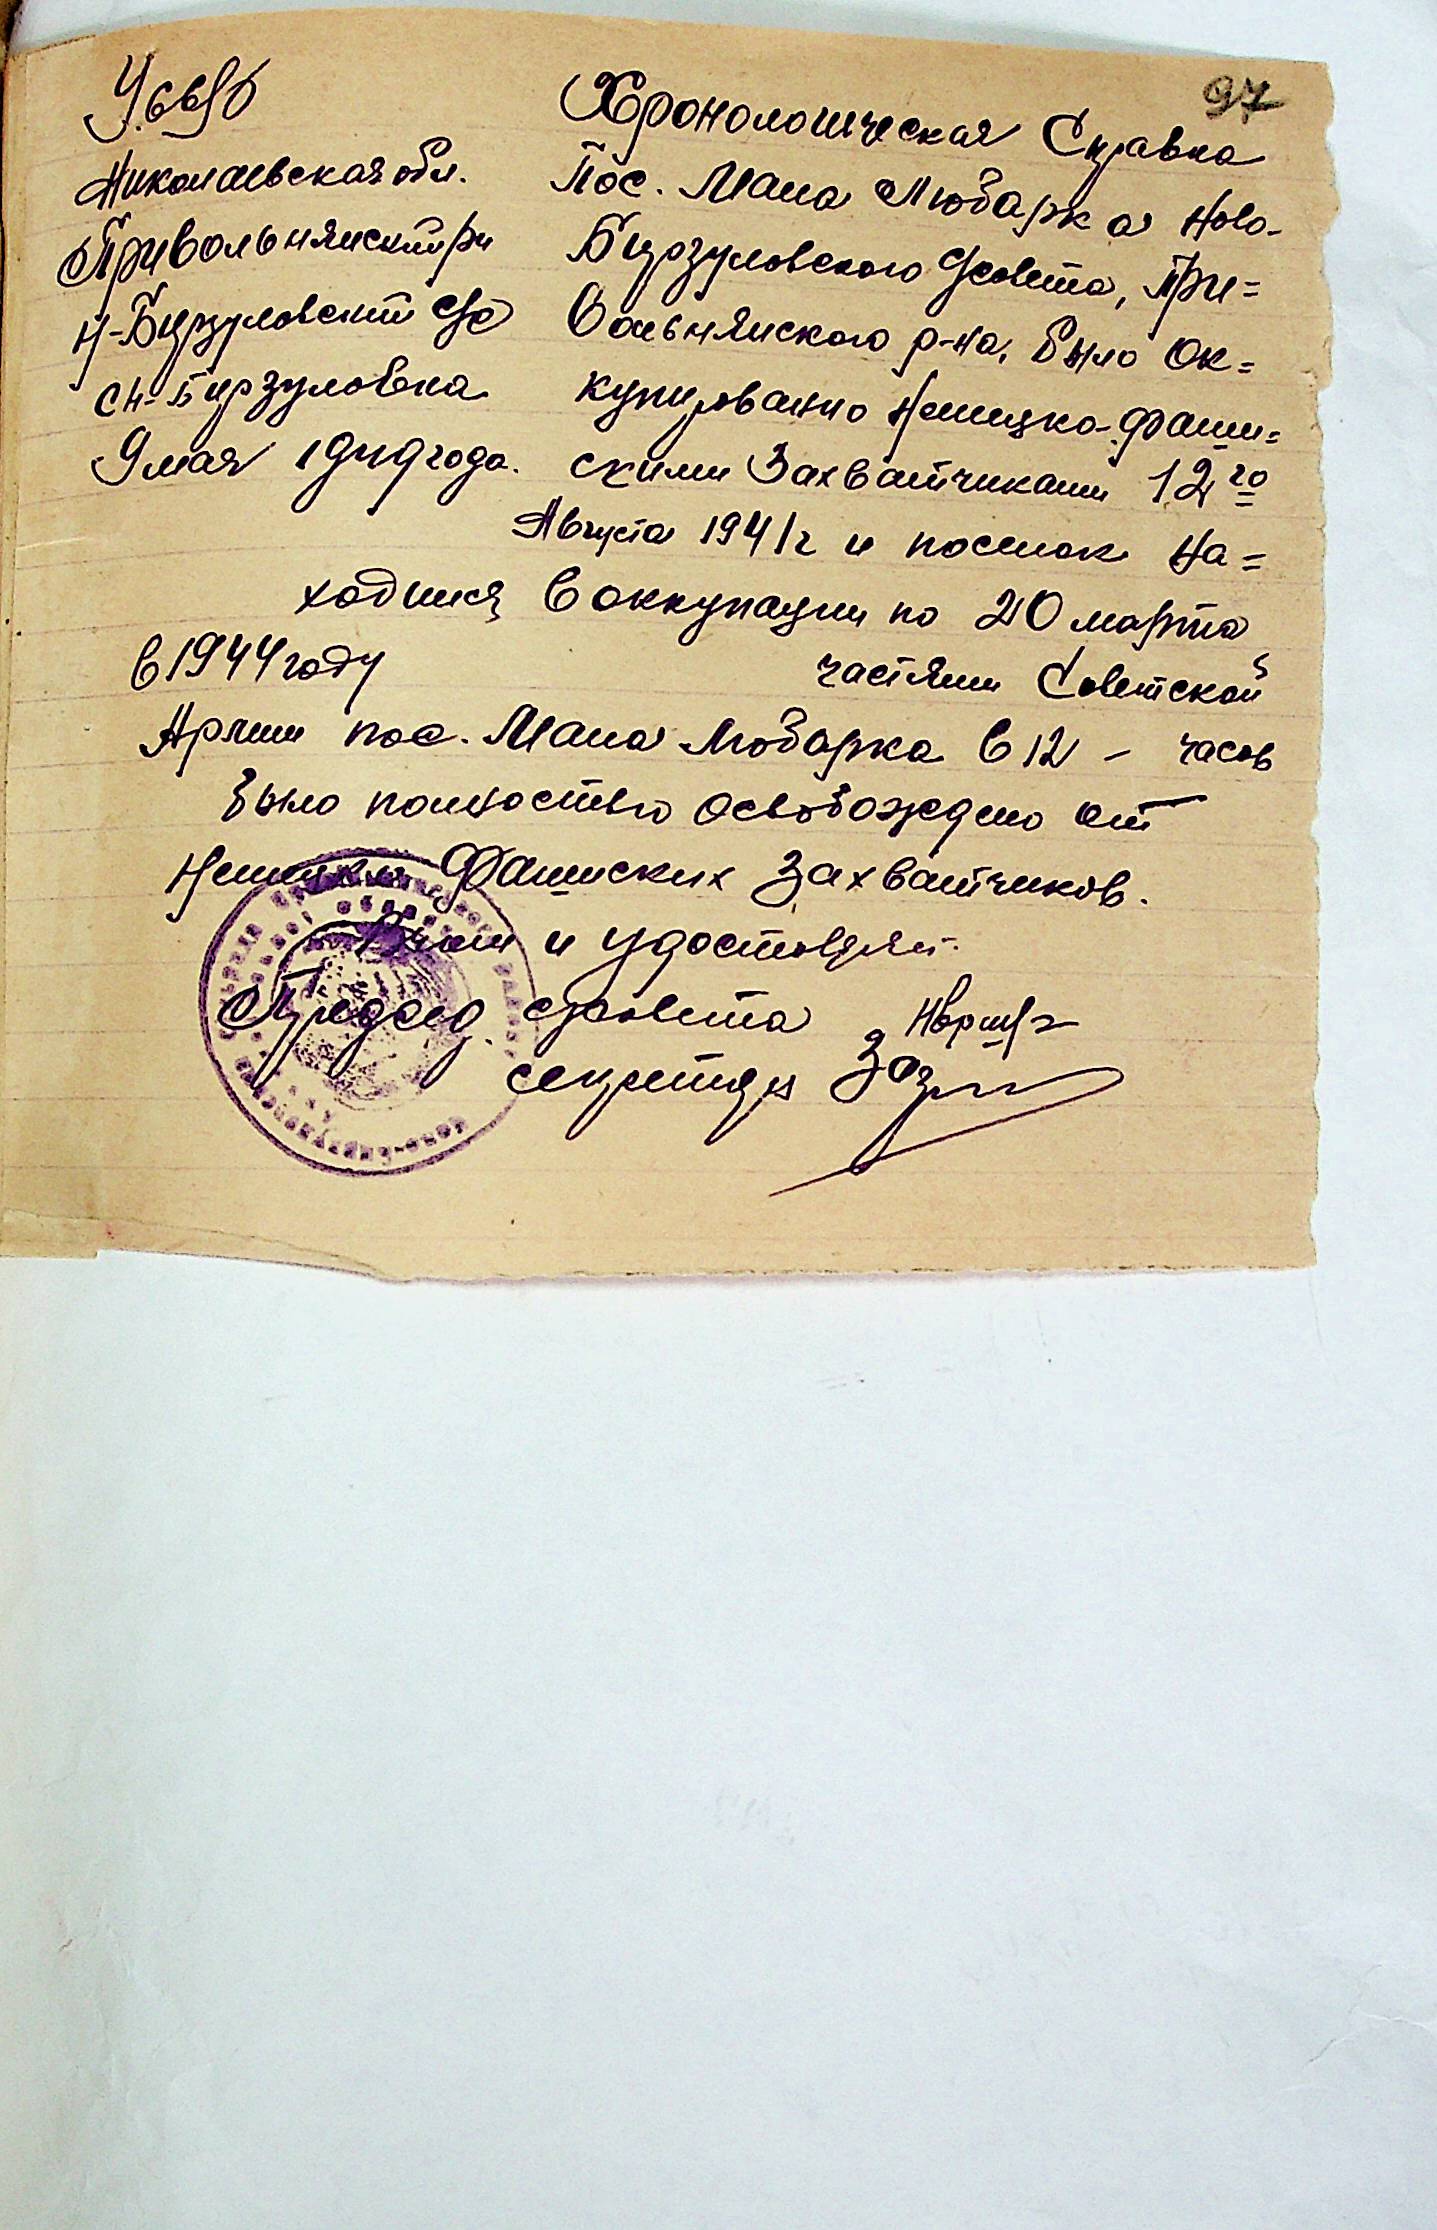 97
УССР
Николаевская обл.
Привольнянский р-н
Н-Бирзуловский с/с
с Н-Бирзуловка
9 мая 1949 года.
Хронологическая Справка
Пос. Мала Любарка Ново-
Бирзуловского с/совета, При=
вольнянского р-на, было ок=
купировано Немецко-фаши=
скими Захватчиками 12го
Августа 1941г и поселок на=
ходился в оккупации по 20 марта
в 1944 году частями Советской
Армии пос. Мала Любарка в 12 - часов
было полностью освобождено от
Немецко Фашиских Захватчиков.
и удостоверяет.
Председ. с/совета
секретарь